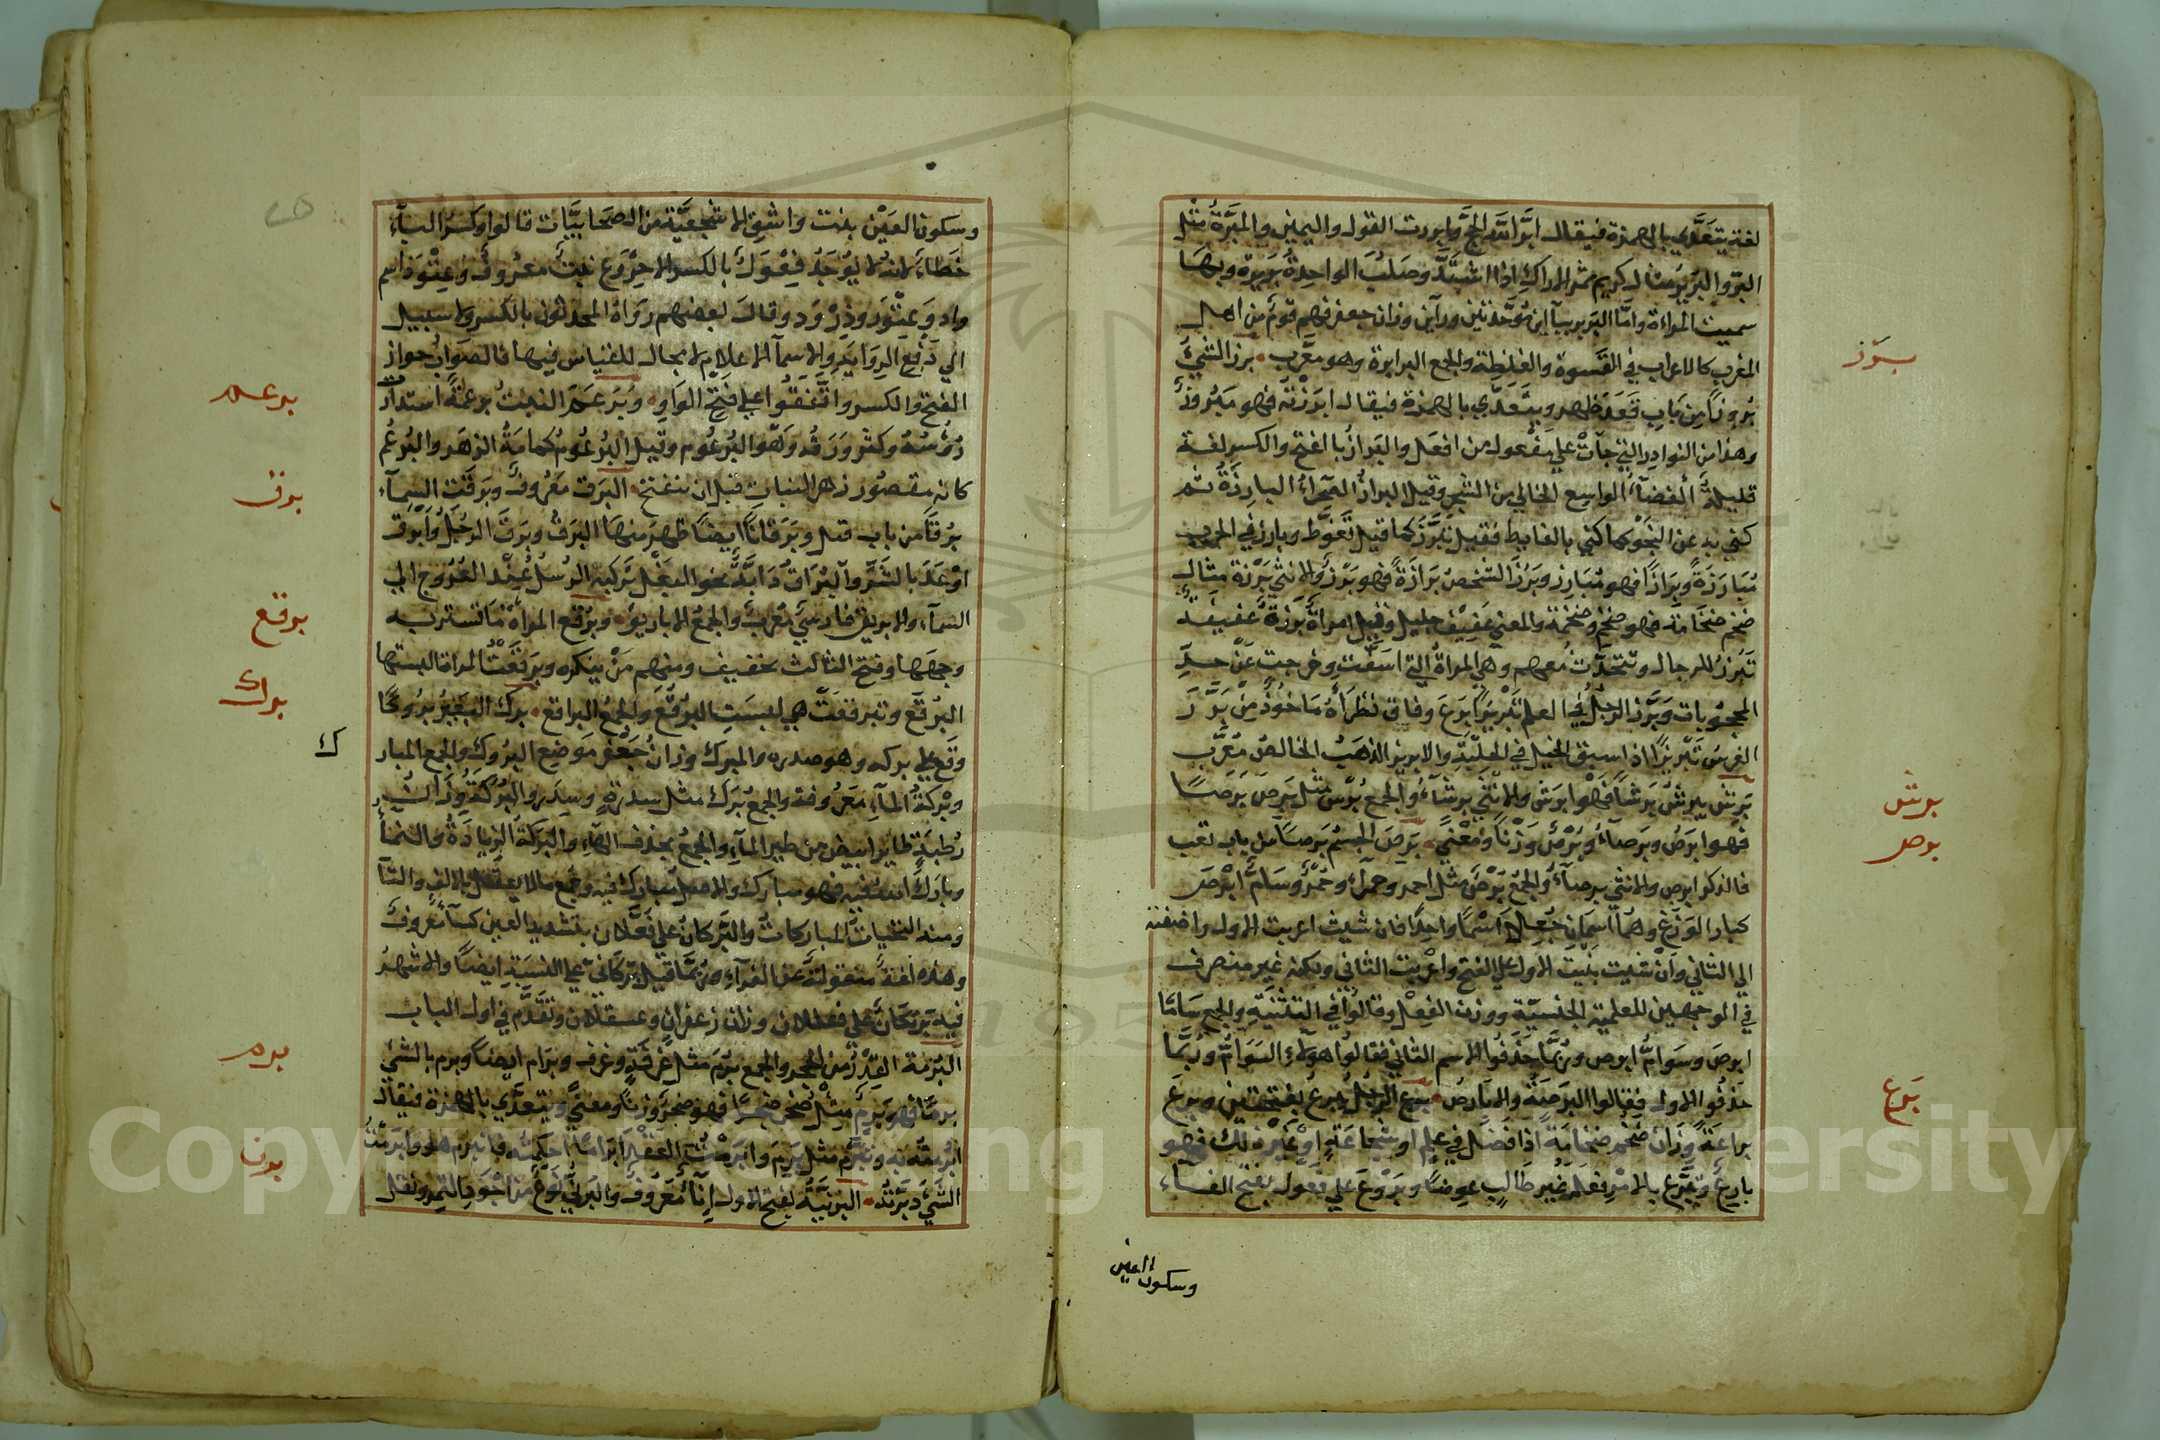 لغة يتعدّي بالهمزة فيقال ابرّ الله الحجّ وابررت القول واليمين والمبرّة مثل
البرّ والبرير مثال كريم ثمر الاراك اذا اشتدّ وصلب الواحدة بريرة وبها
سميت المراة وامّا البربر ببآاين موحّدتين ورآين وزان جعفر فهم قوم من اهل
المغرب كالاعراب في القسوة والغلظة والجمع البرابرة وهو معرّب برز الشئ
بروزًا من باب قعد ظهر ويتعدّي بالهمزة فيقال ابرزته فهو مبروز
وهذا من النوادر التي جآت علي مفعول من افعل والبراز بالفتح والكسر لغة
قليلة الفضآء الواسع الخالي من الشجر وقيل البراز الصحراء البارزة ثم
كني به عن النجو كما كني بالغايط فقيل تبرّز كما قيل تغوّط وبارز في الحرب
مبارزة وبرازًا فهو مبارز وبرز الشخص برازة فهو برز والانثي برزة مثال
ضخم ضخامة فهو ضخم وضخمة والمعني عفيف جليل وقيل امراة برزة عفيفة
تبرز للرجال وتتحدّث معهم وهي المراة التي اسنّت وخرجت عن حدّ
المحجوبات وبرّز الرجل في العلم تبريزًا برع وفاق نظرآه ماخوذ من برّز
الفرس تبريزًا اذا سبق الخيل في الحلبة والابريز الذهب الخالص معرّب
برش يبرش برشًا فهو ابرش والانثي برشآء والجمع برش مثل برص برصًا
فهو ابرص وبرصآء وبرص وزنًا ومعني برص الجسم برصًا من باب تعب
فالذكر ابرص والانثي برصآء والجمع برص مثل احمر وحمرآء وحمر وسامّ ابرص
كبار الوزغ وهما اسمان جعلا اسمًا واحدًا فان شيت اعربت الاول واضفته
الي الثاني وان شيت بنيت الاول علي الفتح واعربت الثاني ولكنه غير منصرف
في الوجهين للعلمية الجنسيّة ووزن الفعل وقالوا في التثنية والجمع سامّا
ابرص وسوامّ ابرص وربّما حذفوا الاسم الثاني فقالوا هولاء السوامّ وربّما
حذفوا الاول فقالوا البرصة والابارص برع الرجل يبرع بفتحتين وبرع
براعة وزان ضخم ضخامة اذا فضل في علم او شجاعة او غير ذلك فهو
بارع وتبرّع بالامر فعله غير طالب عوضًا وبروع علي فعول بفتح الفاء
وسكون العين
برز
برش
برص
برع
وسكون العين بنت واشق الاشجعيّة من الصحابيّات قالوا وكسر البآء
خطاء لانه لا يوجد فعول بالكسر الا خروع نبت معروف وعتود اسم
واد وعتور وذرود وقال بعضهم رواه المحدثون بالكسر ولا سبيل
الي دفع الرواية والاسمآ الاعلام لا مجال للقياس فيها فالصواب جواز
الفتح والكسر واتّفقوا علي فتح الواو وبرعم النبت برعمة استدارت
رؤسه وكثر ورقه وهو البرعوم وقيل البرعوم كمامة الزهر والبرعم
كانه مقصور زهر النبات قبل ان ينفتح البرق معروف وبرقت السمآء
برقًا من باب قتل وبرقانًا ايضًا ظهر منها البرق وبرق الرجل وابرق
اوعد بالشرّ والبراق دابّة نحو البغل تركبه الرسل عند العروج الي
السمآء والابريق فارسي معرب والجمع الاباريق وبرقع المراة ما تستر به
وجهها وفتح الثالث تخفيف ومنهم من ينكره وبرقعت المراة البستها
البرقع وتبرقعت هي لبست البرقع والجمع البراقع برك البعير بروكًا
وقع علي بركه وهو صدره والمبرك وزان جعفر موضع البروك والجمع المبارك
وبركة المآء معروفة والجمع برك مثل سدرة وسدر والبركة وزان
رطبة طاير ابيض من طير المآء والجمع بحذف الهآء والبركة الزيادة والنمآء
وبارك الله فيه فهو مبارك والاصل مبارك فيه وجمع ما لا يعقل بالالف والتآ
ومنه التحيات المباركات والبرّكان علي فعّلان بتشديد العين كسآء معروف
وهذه لغة منقولة عن الفرآء وربّما قيل بركاني علي النسبة ايضًا والاشهر
فيه برنكان علي فعللان وزان زعفران وعسقلان وتقدّم في اول الباب
البرمة القدر من الحجر والجمع برم مثل غرفة وغرف وبرام ايضًا وبرم بالشئ
برمًا فهو برم مثل ضجر ضجرًا فهو ضجر وزنًا ومعنيً ويتعدّي بالهمزة فيقال
ابرمته به وتبرّم مثل برم وابرمت العقد ابرامًا احكمته فانبرم هو وابرمت
الشئ دبرته البرنيّة بفتح الاول انآء معروف والبرنيّ نوع من اجود التمر ونقل
برعم
برق
برقع
برك
ك
برم
برن